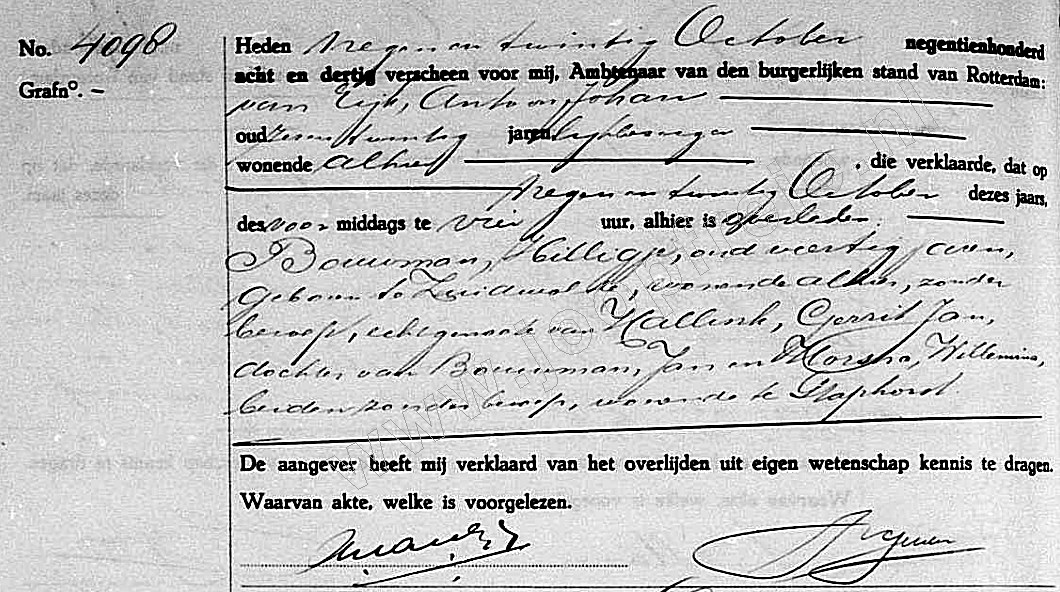 No. 4098
Grafn°. –
Heden negen en twintig October negentienhonderd
acht en dertig verscheen voor mij, Ambtenaar van den burgerlijken stand van Rotterdam:
van Eijk, Antoon Johan
oud zeven twintig jaren,
wonende alhier , die verklaarde, dat op
negen en twintig October dezes jaars,
des voor middags te vier uur, alhier is overleden:
Bouwman, Hilligje, oud veertig jaren,
geboren te Zuidwolde, wonende alhier, zonder
beroep, echtgenoote van Hallink, Gerrit Jan,
dochter van Bouwman, Jan en Willemina,
beiden zonder beroep, wonende te Staphorst
De aangever heeft mij verklaard van het overlijden uit eigen wetenschap kennis te dragen.
Waarvan akte, welke is voorgelezen.